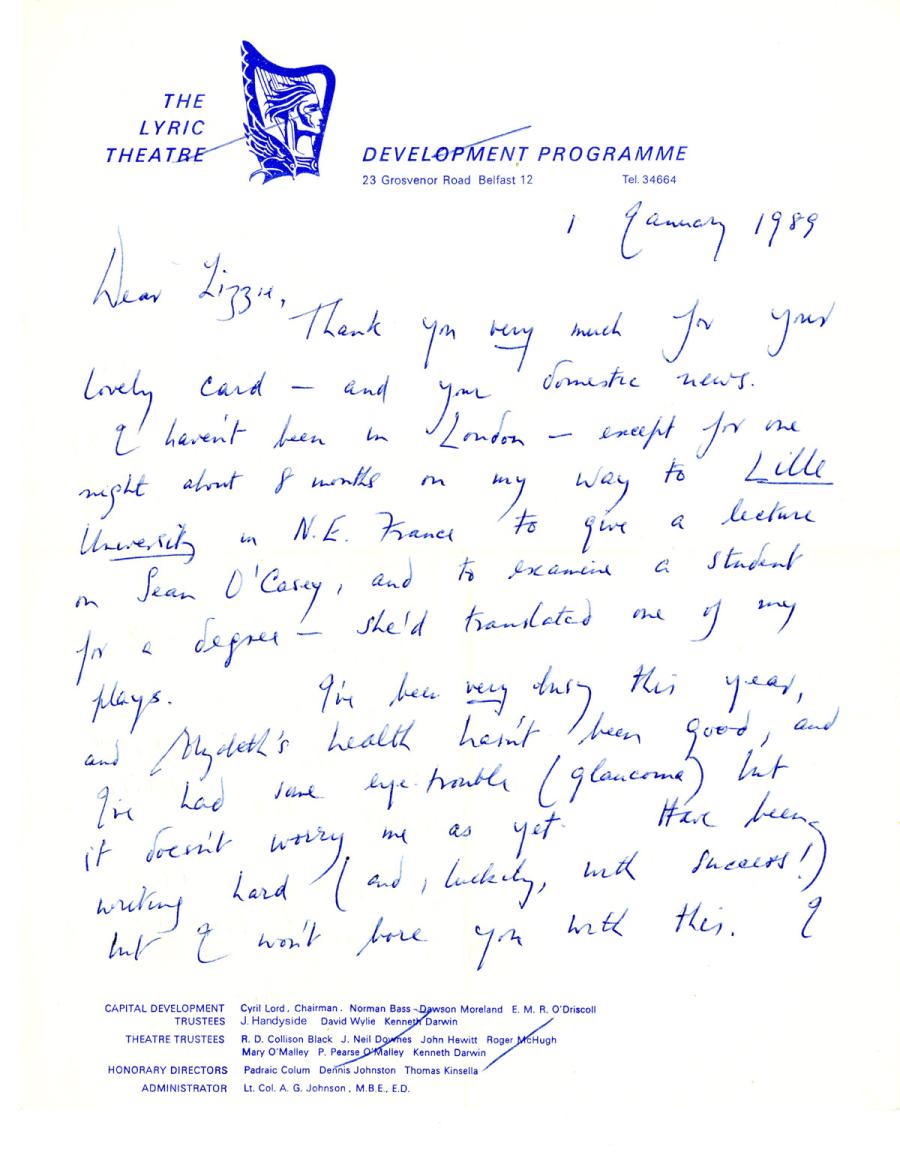 THE
LYRIC
THEATRE
DEVELOPMENT PROGRAMME
23 Grosvenor Road Belfast 12 Tel. 34664
1 January 1989
Dear Lizzie,
Thank you very much for your
lovely card – and your domestic news.
I haven't been in London – except for one
night about 8 months on my way to Lille
University in N.E. France to give a lecture
on Sean O'Casey, and to examine a student
for a degree – she'd translated one of my
plays. I've been very busy this year,
and health hasn't been good, and
I've had some eye-trouble (glaucoma) but
it doesn't worry me as yet. Have been
writing hard (and, luckily, with success!)
but I won't bore you with this. I
CAPITAL DEVELOPMENT TRUSTEES Cyril Lord, Chairman. Norman Bass Dawson Moreland E. M. R. O'Driscoll
J. Handyside David Wylie Kenneth Darwin
THEATRE TRUSTEES R. D. Collison Black J. Neil Downes John Hewitt Roger McHugh
Mary O'Malley P. Pearse O'Malley Kenneth Darwin
HONORARY DIRECTORS Padraic Colum Dennis Johnston Thomas Kinsella
ADMINISTRATOR Lt. Col. A. G. Johnson, M.B.E., E.D.